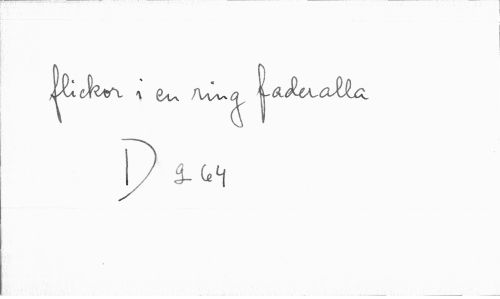 flickor i en ring faderalla
D 264